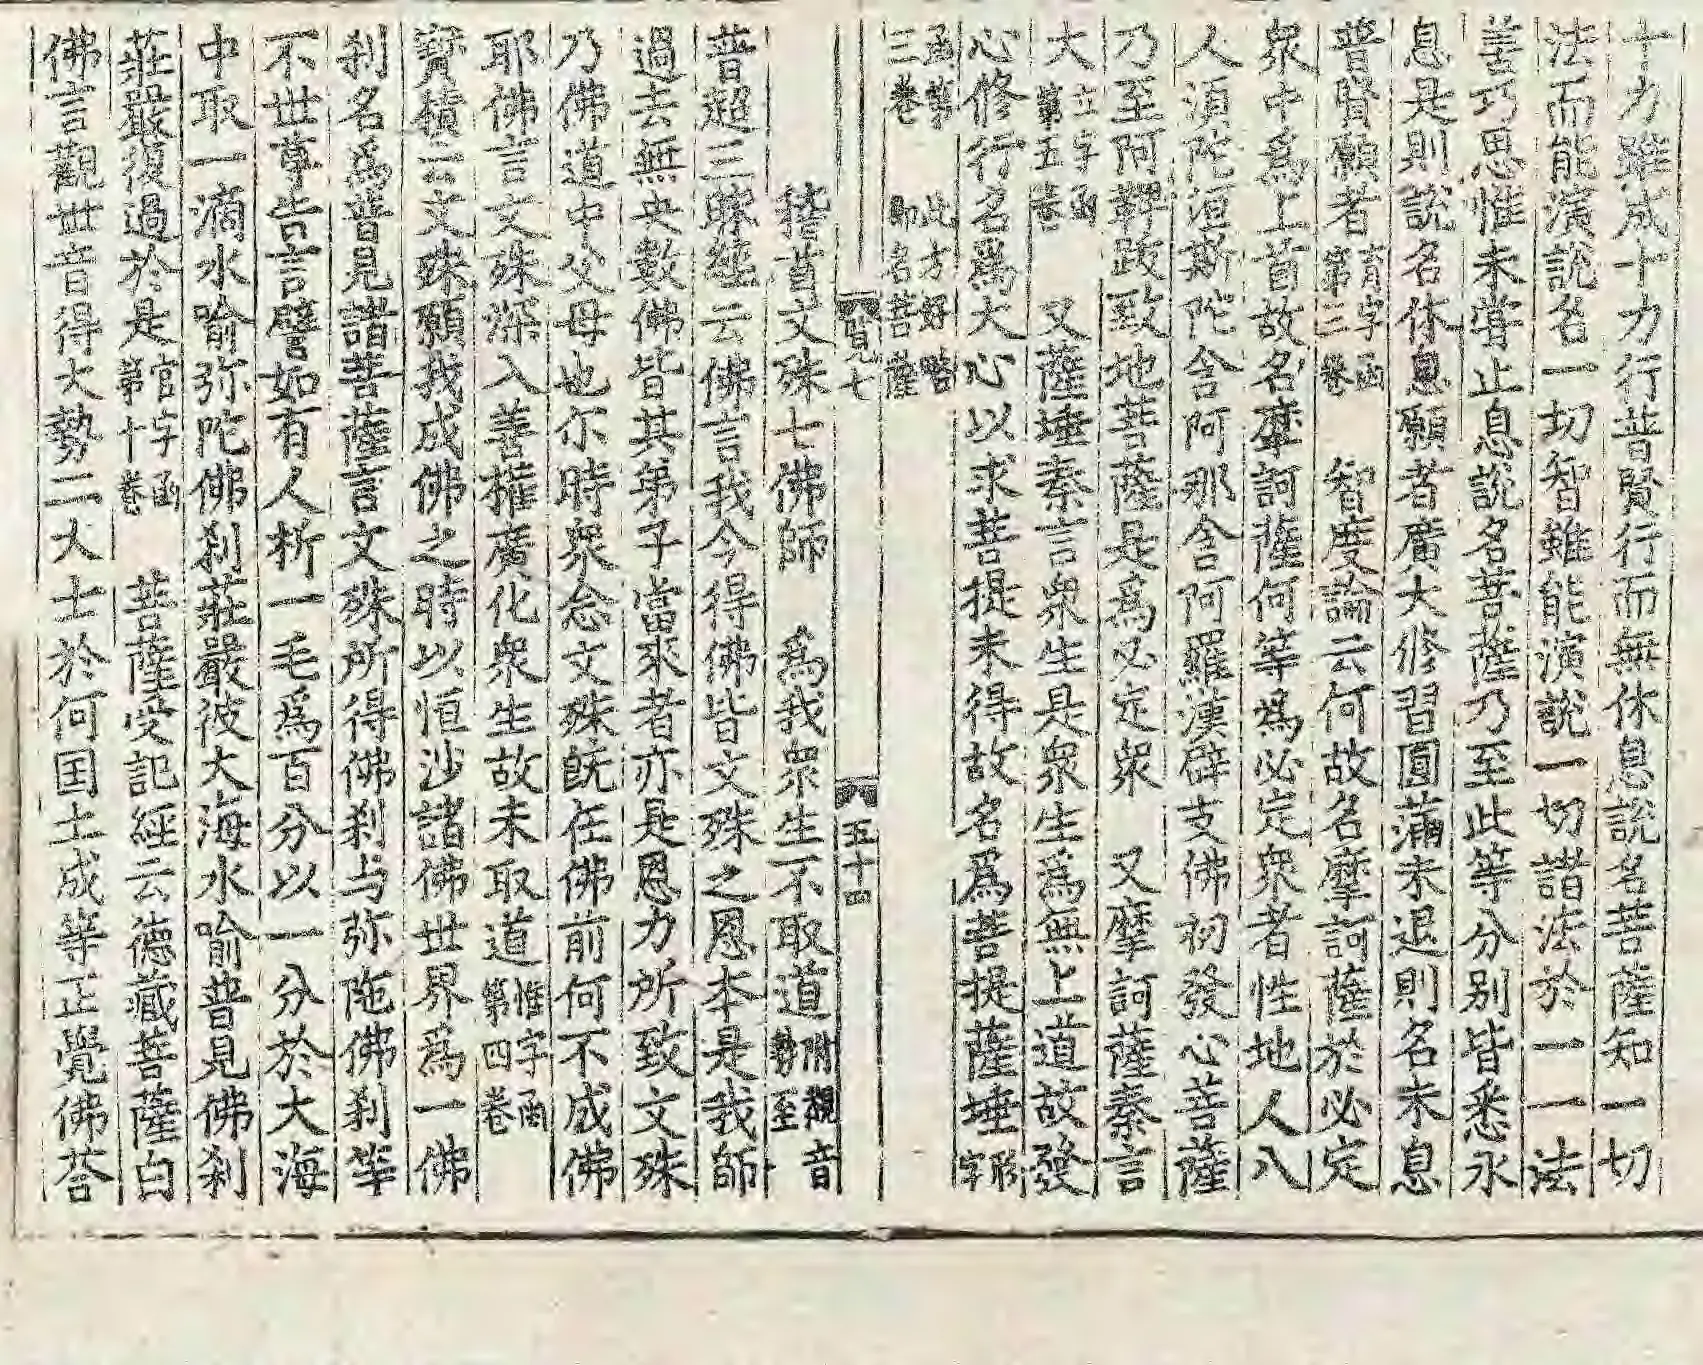 十力雖成十力行普賢行而無休息說名菩薩知一切
法而能演說名一切智雖能演說一切諸法於一一法
善巧思惟未嘗止息說名菩薩乃至此等分別皆悉永
息是則說名休息願者廣大修習圓滿未退則名未息
普賢願者育字函第三卷 智度論云何故名摩訶薩於必定
衆中為上首故名摩訶薩何等為必定衆者性地人八
人須陀洹斯陀含阿那含阿羅漢辟支佛初發心菩薩
乃至阿鞞跋致地菩薩是為必定衆 又摩訶薩秦言
大立字函第五卷 又薩埵秦言衆生是衆生為無上道故發
心修行名為大心以求菩提未得故名為菩提薩埵形字
函第三卷 此方好略即名菩薩
賢九七 五十四
稽首文殊七佛師 為我衆生不取道附觀音勢至
普超三昧經云佛言我今得佛皆文殊之恩本是我師
過去無央數佛皆其弟子當來者亦是恩力所致文殊
乃佛道中父母也尔時衆念文殊旣在佛前何不成佛
耶佛言文殊深入善權廣化衆生故未取道惟字函第四卷
寶積云文殊願我成佛之時以恒沙諸佛世界為一佛
刹名為普見諸菩薩言文殊所得佛刹与弥陁佛刹等
不世尊告言譬如有人析一毛為百分以一分於大海
中取一滴水喻弥陀佛刹莊嚴彼大海水喻普見佛刹
莊嚴復過於是官字函第十卷 菩薩受記經云德藏菩薩白
佛言觀世音得大勢二大士於何国土成等正覺佛荅